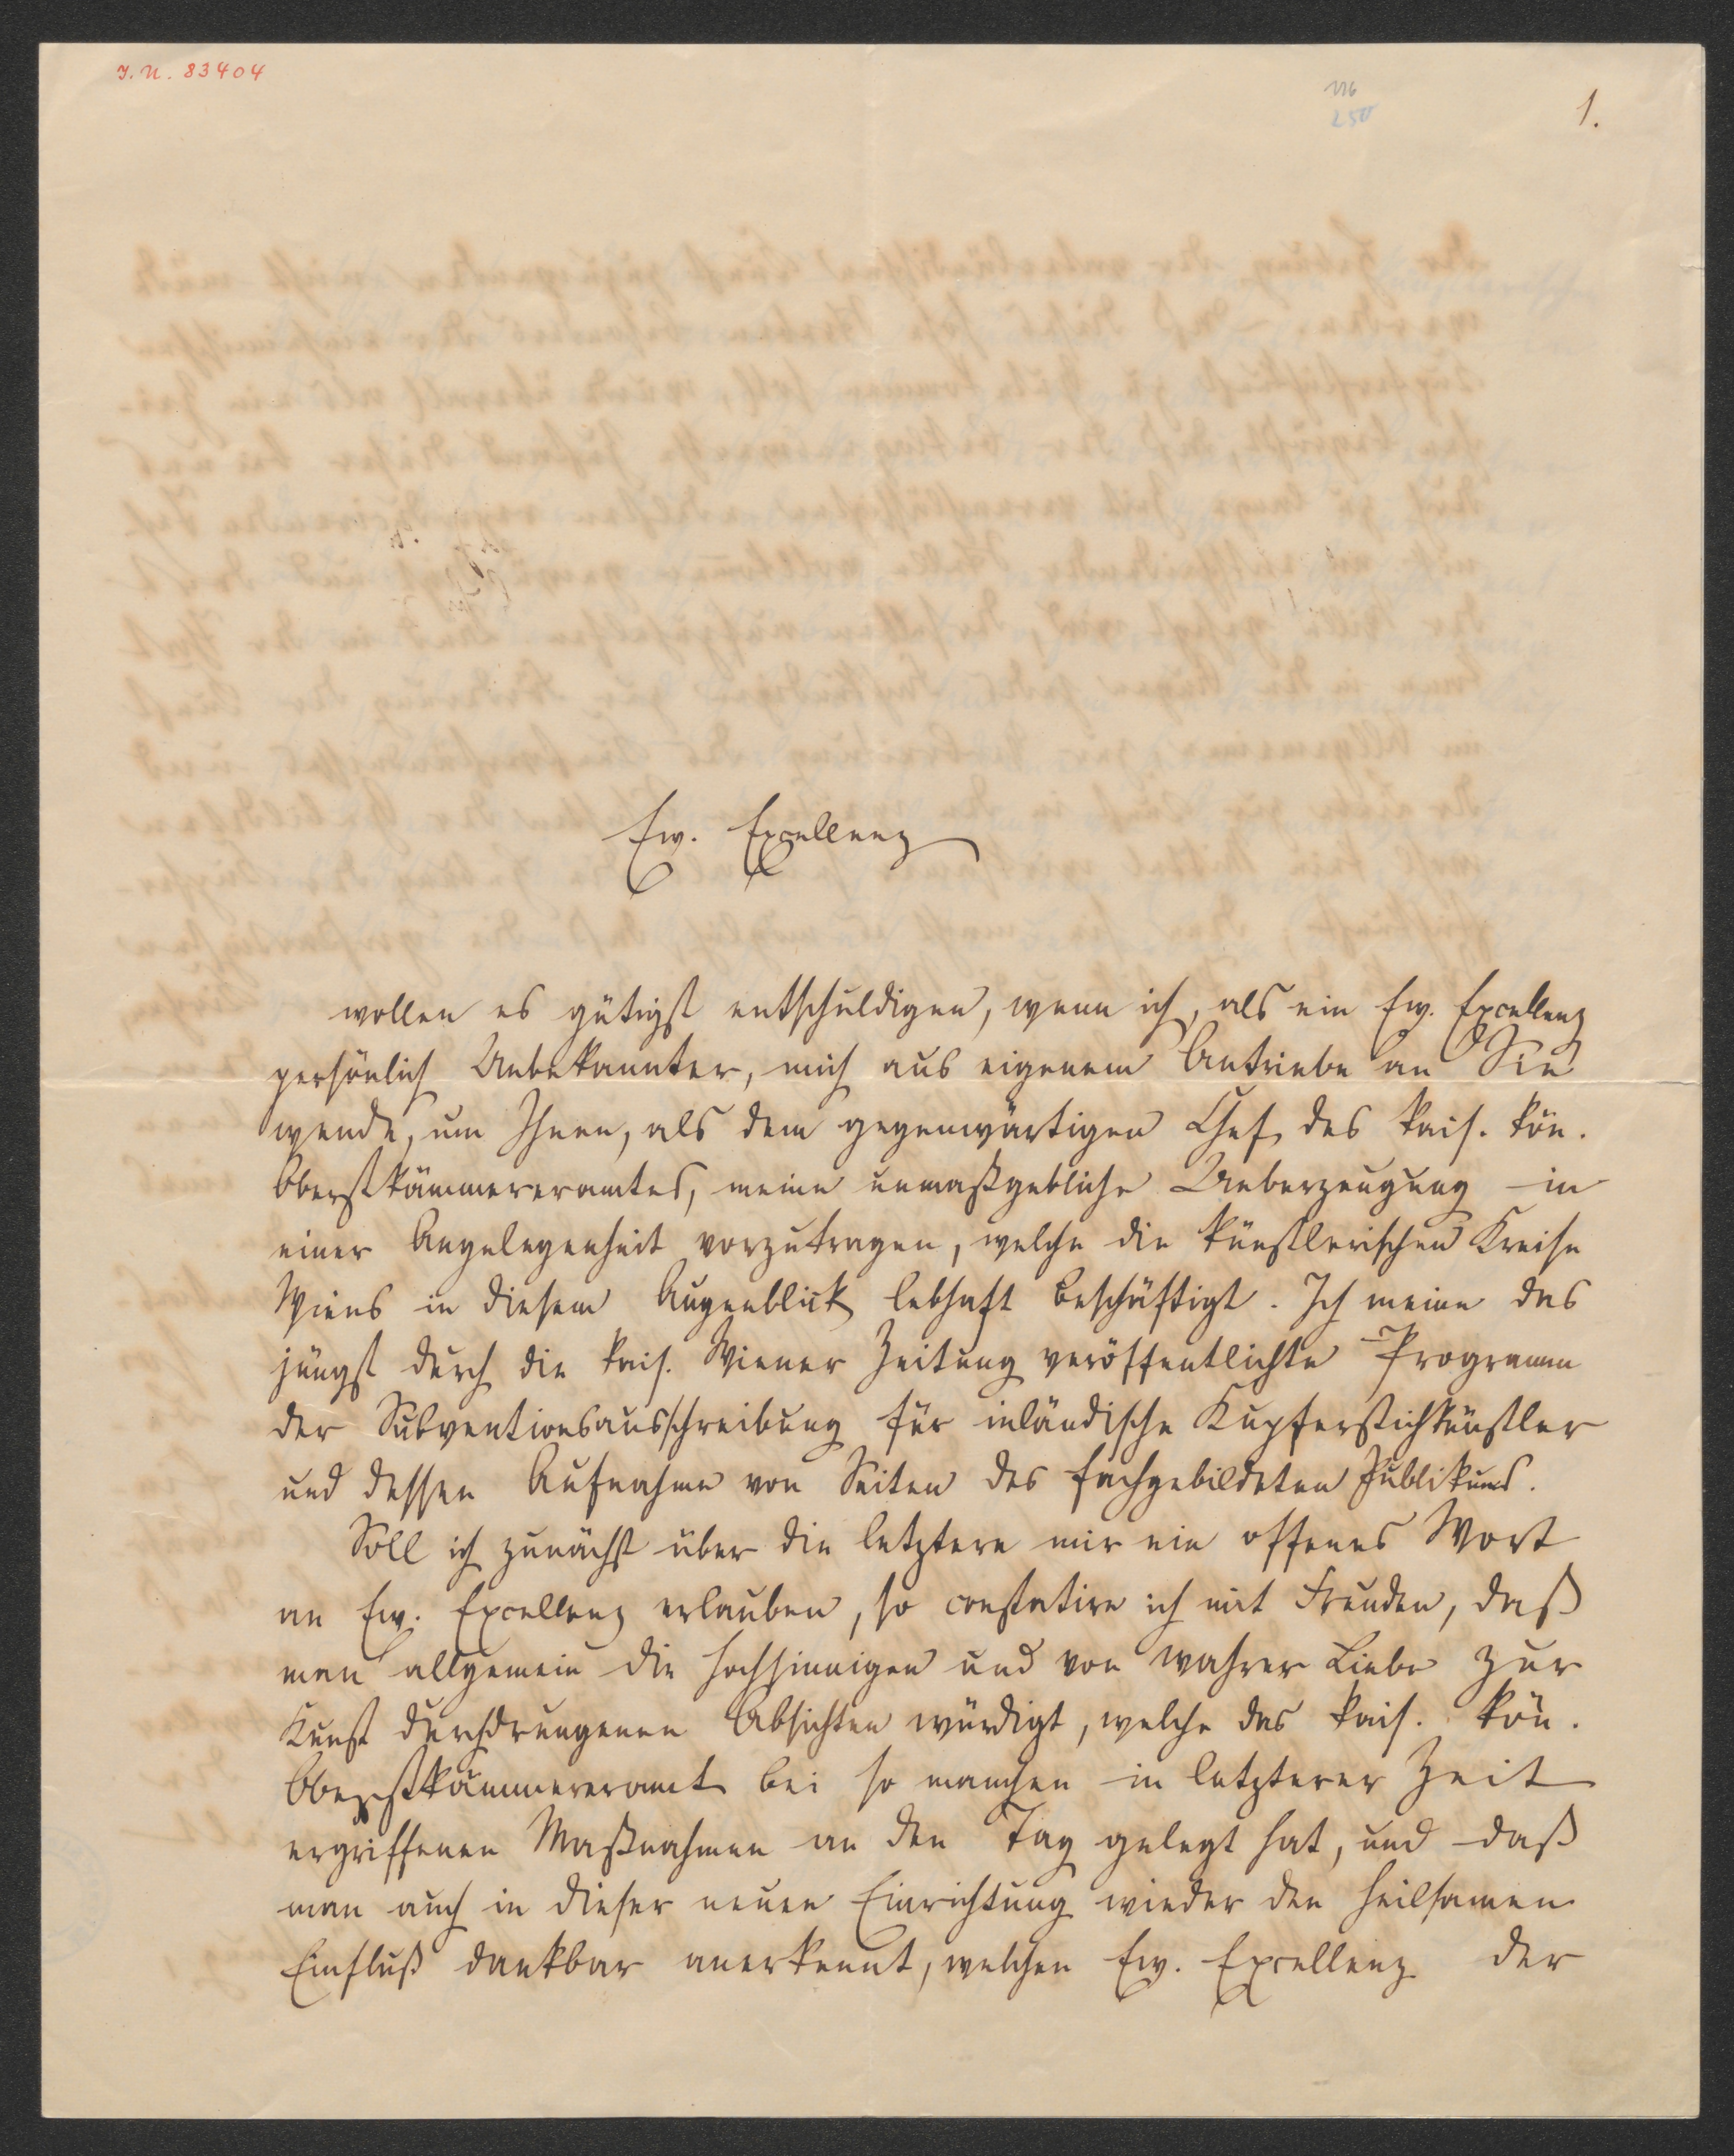 I. N. 83404
1.
Ew. Excellenz
wollen es gütigst entschuldigen, wenn ich, als ein Ew. Excellenz
persönlich Unbekannter, mich aus eigenem Antriebe an Sie
wende, um Ihnen, als dem gegenwärtigen Chef des kais. kön.
Oberstkämmereramtes, meine unmaßgebliche Ueberzeugung in
einer Angelegenheit vorzutragen, welche die künstlerischen Kreise
Wiens in diesem Augenblick lebhaft beschäftigt. Ich meine das
jüngst durch die kais. Wiener Zeitung veröffentlichte Programm
der Subventionsausschreibung für inländische Kupferstichkünstler
und dessen Aufnahme von Seiten des fachgebildeten Publikums.
Soll ich zunächst über die letztere mir ein offenes Wort
an Ew. Excellenz erlauben, so constatire ich mit Freuden, daß
man allgemein die hochsinnigen und von wahrer Liebe zur
Kunst durchdrungenen Absichten würdigt, welche das kais. kön.
Oberstkämmereramt bei so manchen in letzterer Zeit
ergriffenen Maßnahmen an den Tag gelegt hat, und daß
man auch in dieser neuen Einrichtung wieder den heilsamen
Einfluß dankbar anerkennt, welchen Ew. Excellenz der